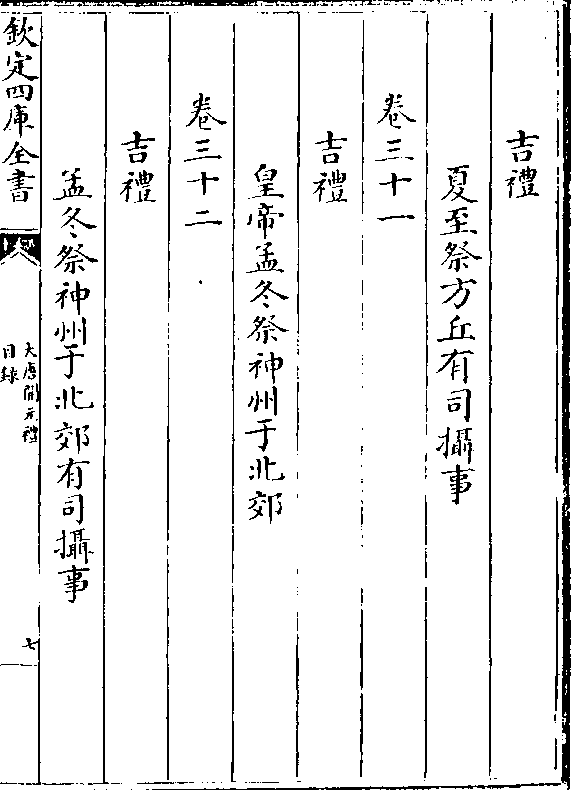 吉禮
夏至祭方丘有司攝事
卷三十一
吉禮
皇帝孟冬祭神州于北郊
卷三十二
吉禮
孟冬祭神州于北郊有司攝事
欽定四庫全書
大唐開元禮
目錄
七